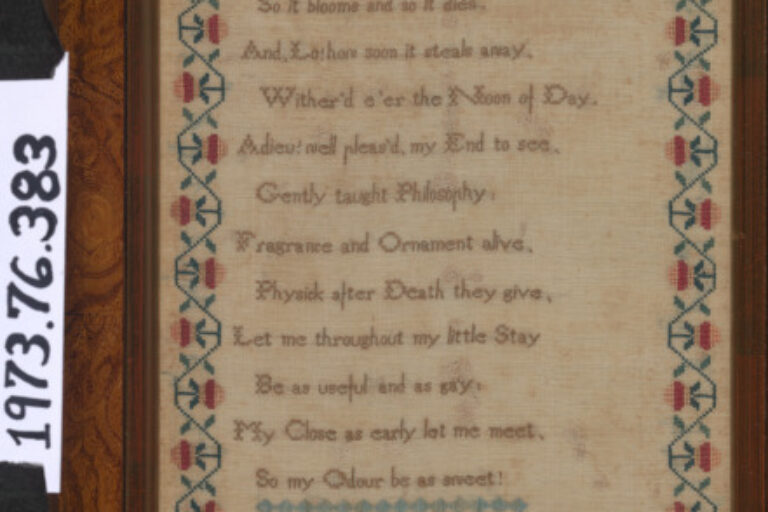 So it blooms and so it dies.
And, Lo! how soon it steals away,
Wither'd e'er the Noon of Day.
Adieu! well pleas'd, my End to see,
Gently taught Philosophy;
Fragrance and Ornament alive,
Physick after Death they give,
Let me throughout my little Stay
Be as useful and as gay;
My Close as early let me meet,
So my Odour be as sweet!
1973.76.383